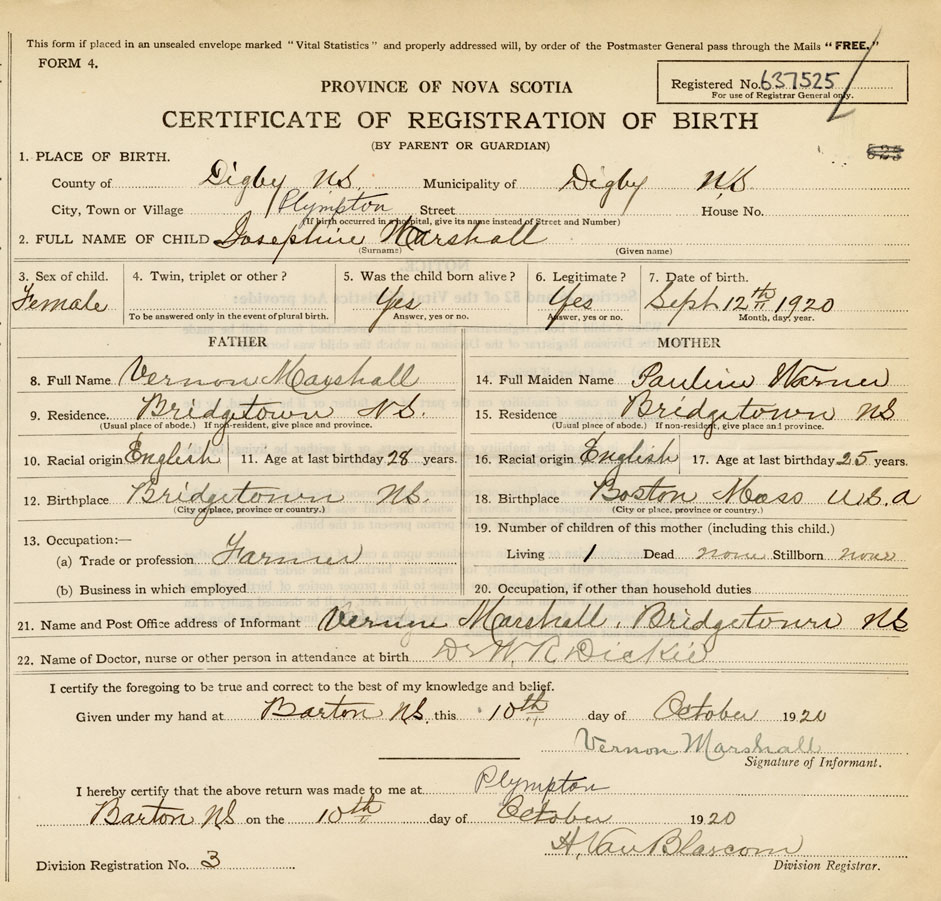 This form if placed in an unsealed envelope marked "Vital Statistics" and properly addressed will, by order of the Postmaster General pass through the Mails "FREE."
FORM 4.
Registered No. 637525
For use of Registrar General only.
PROVINCE OF NOVA SCOTIA
CERTIFICATE OF REGISTRATION OF BIRTH
(BY PARENT OR GUARDIAN)
1. PLACE OF BIRTH.
County of Digby NS. Municipality of Digby NS
City, Town or Village Plympton Street House No.
(If birth occurred in a hospital, give its name instead of Street and Number)
2. FULL NAME OF CHILD Josephine Marshall
(Surname) (Given name)
3. Sex of child. 4. Twin, triplet or other? 5. Was the child born alive? 6. Legitimate? 7. Date of birth.
Female Yes Yes Sept. 12th 1920
To be answered only in the event of plural birth. Answer, yes or no. Answer, yes or no. Month, day, year.
FATHER MOTHER
8. Full Name Vernon Marshall 14. Full Maiden Name Pauline Warner
9. Residence. Bridgetown NS. 15. Residence Bridgetown NS
(Usual place of abode.) If non-resident, give place and province. (Usual place of abode.) If non-resident, give place and province.
10. Racial origin English 11. Age at last birthday 28 years. 16. Racial origin English 17. Age at last birthday 25 years.
12. Birthplace Bridgetown NS. 18. Birthplace Boston Mass U.S.A
(City or place, province or country.) (City or place, province or country.)
13. Occupation:— 19. Number of children of this mother (including this child.)
(a) Trade or profession Farmer Living 1 Dead none Stillborn none
(b) Business in which employed 20. Occupation, if other than household duties
21. Name and Post Office address of Informant Vernon Marshall. Bridgetown NS
22. Name of Doctor, nurse or other person in attendance at birth Dr W. R. Dickie
I certify the foregoing to be true and correct to the best of my knowledge and belief.
Given under my hand at Barton NS. this 10th day of October 1920
Vernon Marshall
Signature of Informant.
I hereby certify that the above return was made to me at Plympton
Barton NS on the 10th day of October 1920
H. Van Blarcom
Division Registration No. 3 Division Registrar.